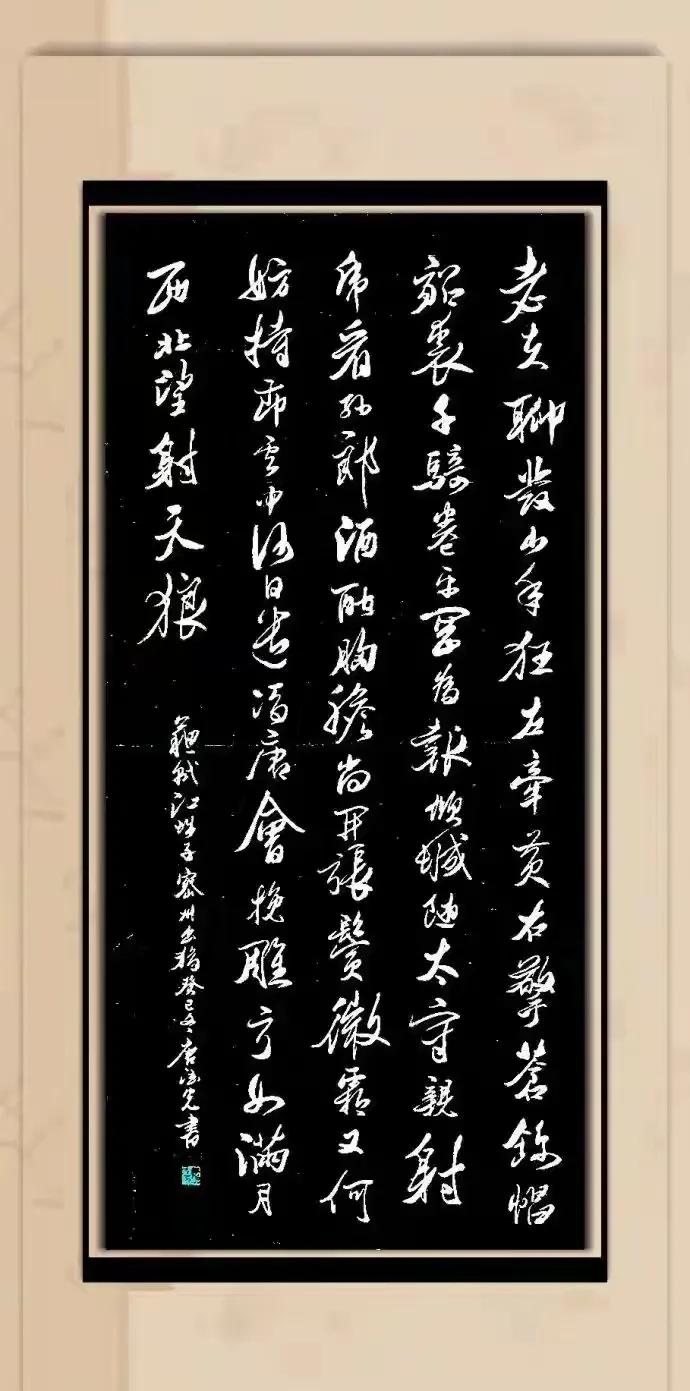 老夫聊發少年狂左牽黄右擎蒼錦帽
貂裘千騎卷平岡為報傾城随太守親射
虎看孫郎酒酣胸膽尚開張鬢微霜又何
妨持節雲中何日遣馮唐會挽雕弓如滿月
西北望射天狼
蘇軾江城子密州出獵癸巳冬唐書